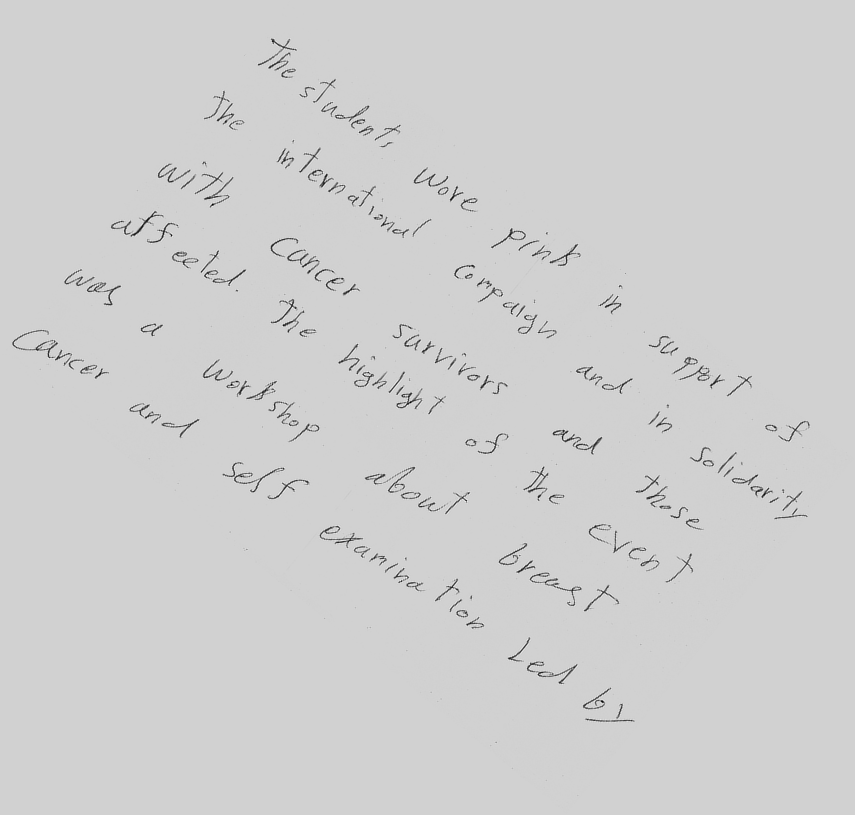 The students wore pink in support of
the international campaign and in solidarity
with cancer survivors and those
affected. The highlight of the event
was a workshop about breast
cancer and self examination Led by